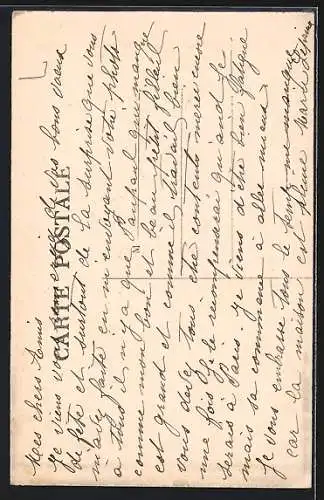 CARTE POSTALE
Mes chers Amis
Je viens vous remercier de vos bons vœux
de fête et surtout de la surprise que vous
m'avez faite en m'envoyant votre photo
à tous il n'y a que Raupaul qui manque
comme mon bon et beau petit filleul
est grand et comme il travail bien
vous devez tous être contents merci encore
une fois Je le recompenserai quand Je
serais à Paris. Je viens d'être bien fatigué
mais sa commence à aller mieux
Je vous embrasse tous le temps me manque
car la maison est pleine